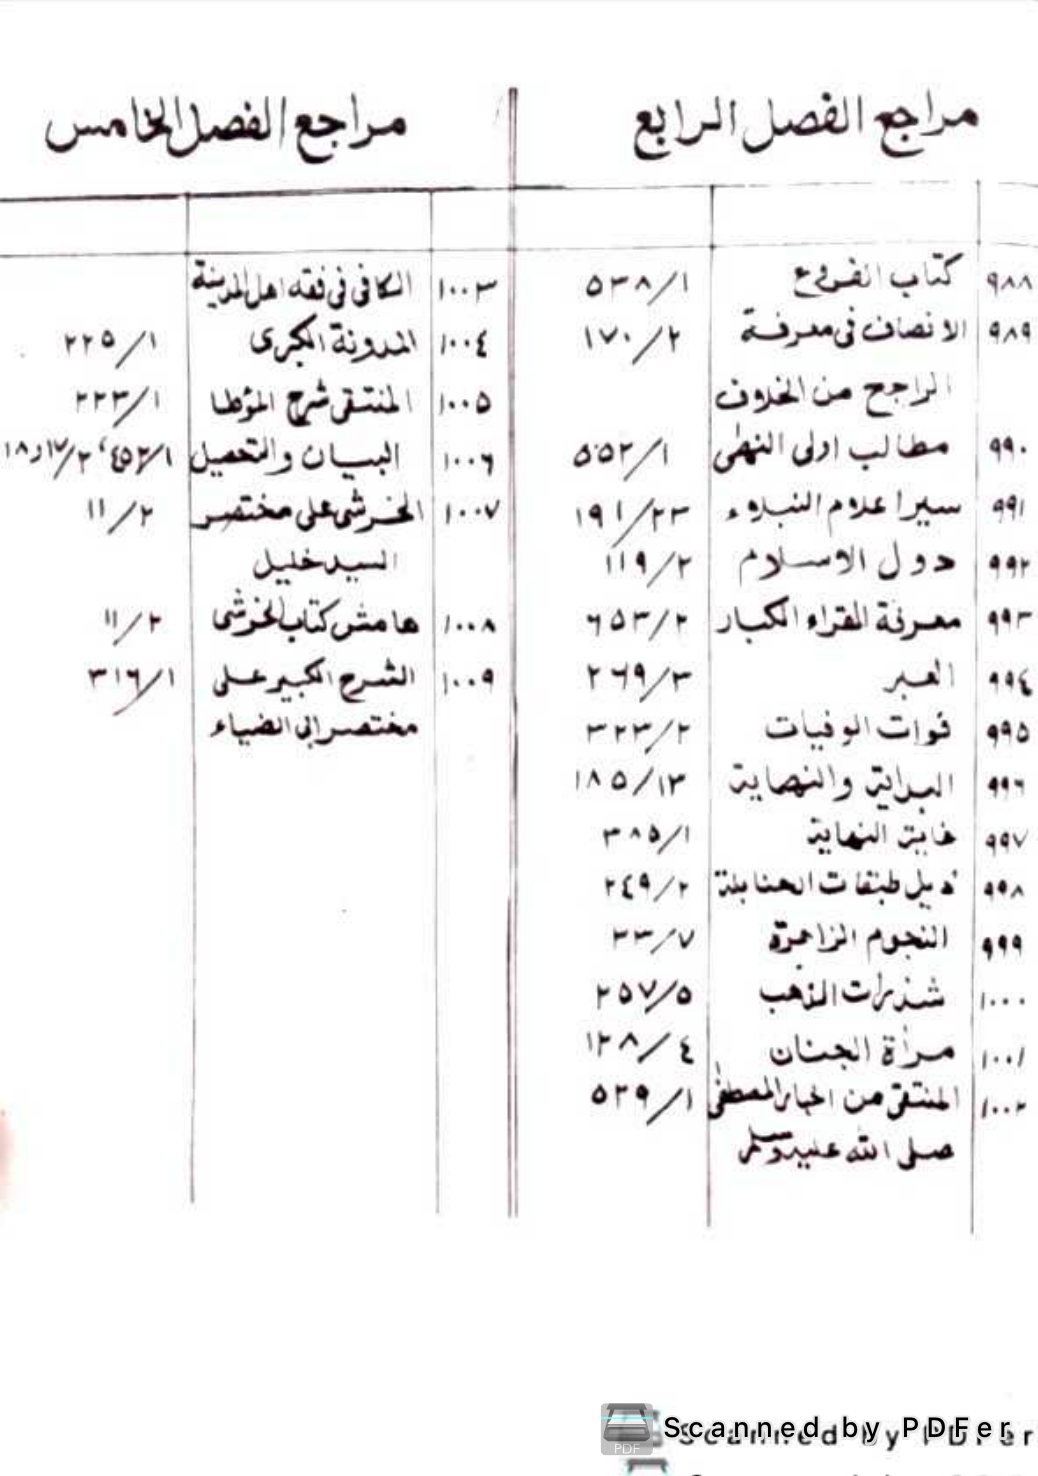 مراجع الفصل الرابع
٩٨٨ كتاب الفروع ٥٣٨/١
٩٨٩ الانصاف فى معرفة ١٧٠/٢
الراجح من الخلاف
٩٩٠ مطالب اولى النهى ٥٥٢/١
٩٩١ سير اعلام النبلاء ١٩١/٢٣
٩٩٢ دول الاسلام ١١٩/٢
٩٩٣ معرفة القراء الكبار ٦٥٣/٢
٩٩٤ العبر ٢٦٩/٣
٩٩٥ فوات الوفيات ٣٢٣/٢
٩٩٦ البداية والنهاية ١٨٥/١٣
٩٩٧ غاية النهاية ٣٨٥/١
٩٩٨ ذيل طبقات الحنابلة ٢٤٩/٢
٩٩٩ النجوم الزاهرة ٣٣/٧
١٠٠٠ شذرات الذهب ٢٥٧/٥
١٠٠١ مرأة الجنان ١٢٨/٤
١٠٠٢ المنتقى من اخبار المصطفى ٥٢٩/١
صلى الله عليه وسلم
مراجع الفصل الخامس
١٠٠٣ الكافى فى فقه اهل المدينة
١٠٠٤ المدونة الكبرى ٢٢٥/١
١٠٠٥ المنتقى شرح المؤطا ٢٢٣/١
١٠٠٦ البيان والتحصيل ٤٥٢/١، ١٧/٢ و١٨
١٠٠٧ الخرشى على مختصر ١١/٢
السيد خليل
١٠٠٨ هامش كتاب الخرشى ١١/٢
١٠٠٩ الشرح الكبير على ٣١٦/١
مختصر ابى الضياء
Scanned by PDFer
Scanned by PDFer